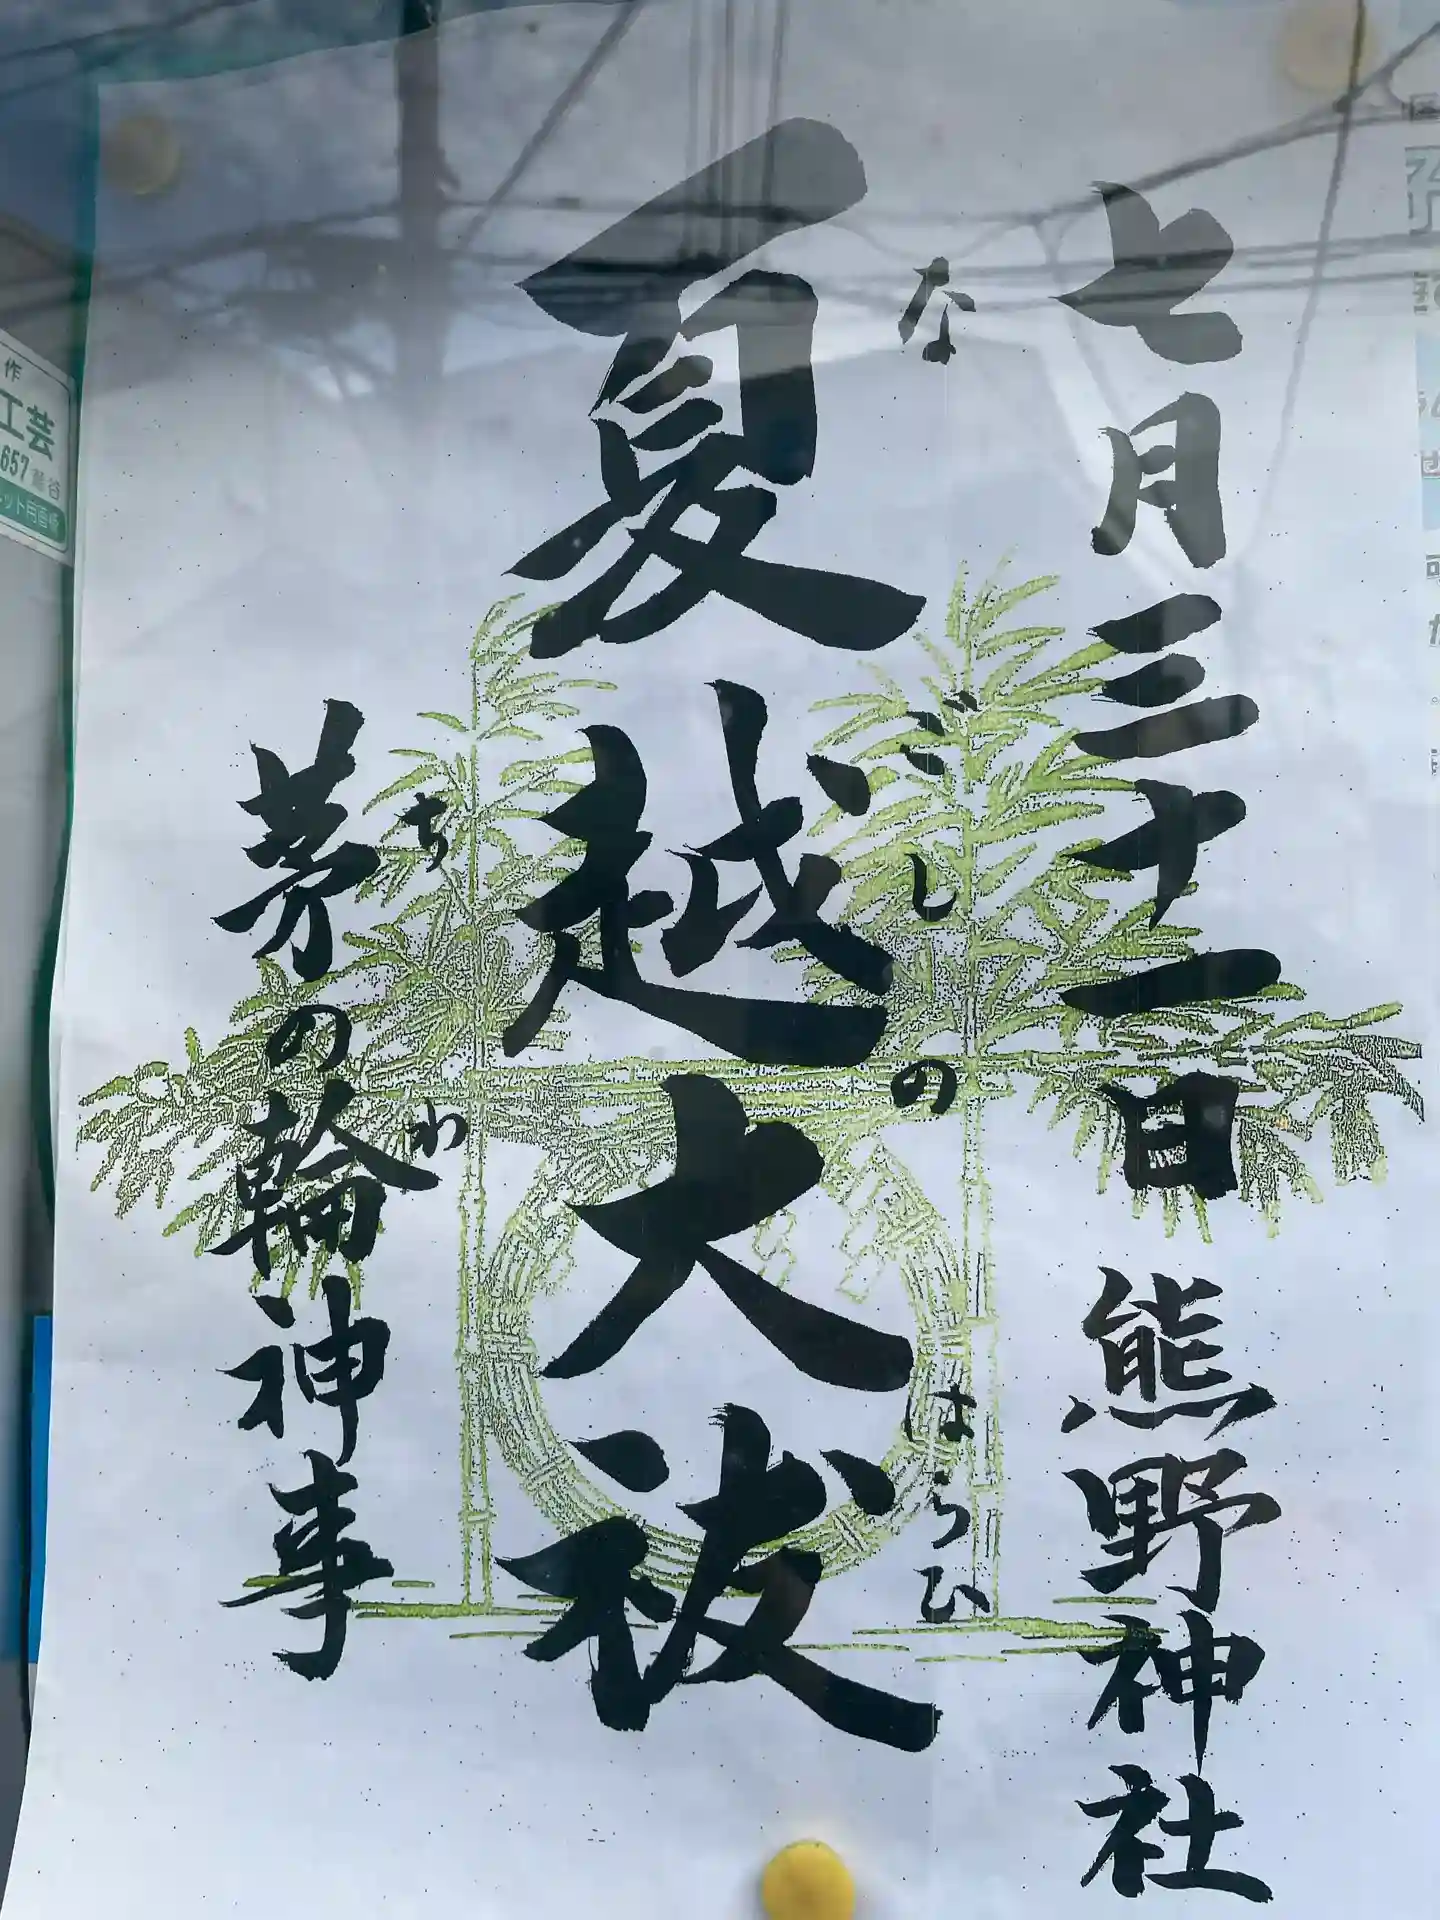 七月三十一日 熊野神社
なごしのはらひ
夏越大祓
ちわ
茅の輪神事
作
工芸
657